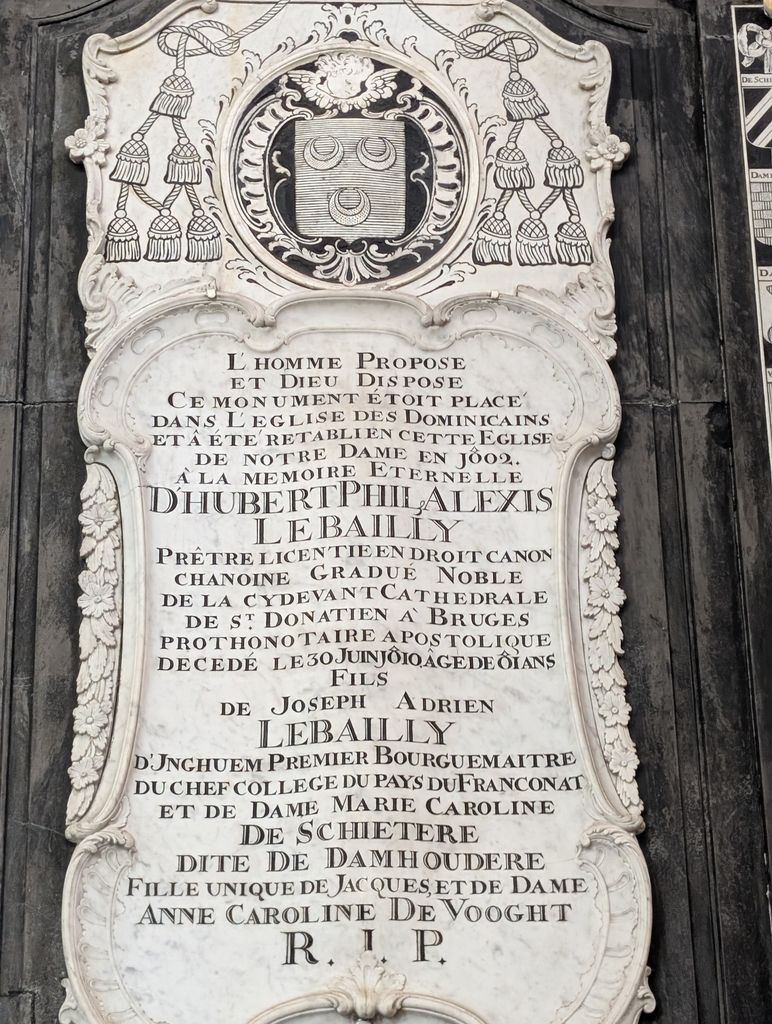 L'HOMME PROPOSE
ET DIEU DISPOSE
CE MONUMENT ÉTOIT PLACÉ
DANS L'EGLISE DES DOMINICAINS
ET Â ÉTÉ RETABLI EN CETTE EGLISE
DE NOTRE DAME EN J802.
À LA MEMOIRE ETERNELLE
D'HUBERT PHIL. ALEXIS
LEBAILLY
PRÊTRE LICENTIE EN DROIT CANON
CHANOINE GRADUÉ NOBLE
DE LA CYDEVANT CATHEDRALE
DE ST. DONATIEN À BRUGES
PROTHONOTAIRE APOSTOLIQUE
DECEDÉ LE 30 JUIN J810, ÂGE DE 81 ANS
FILS
DE JOSEPH ADRIEN
LEBAILLY
D'JNGHUEM PREMIER BOURGUEMAITRE
DU CHEF COLLEGE DU PAYS DU FRANCONAT
ET DE DAME MARIE CAROLINE
DE SCHIETERE
DITE DE DAMHOUDERE
FILLE UNIQUE DE JACQUES, ET DE DAME
ANNE CAROLINE DE VOOGHT
R. I. P.
DE SCHI